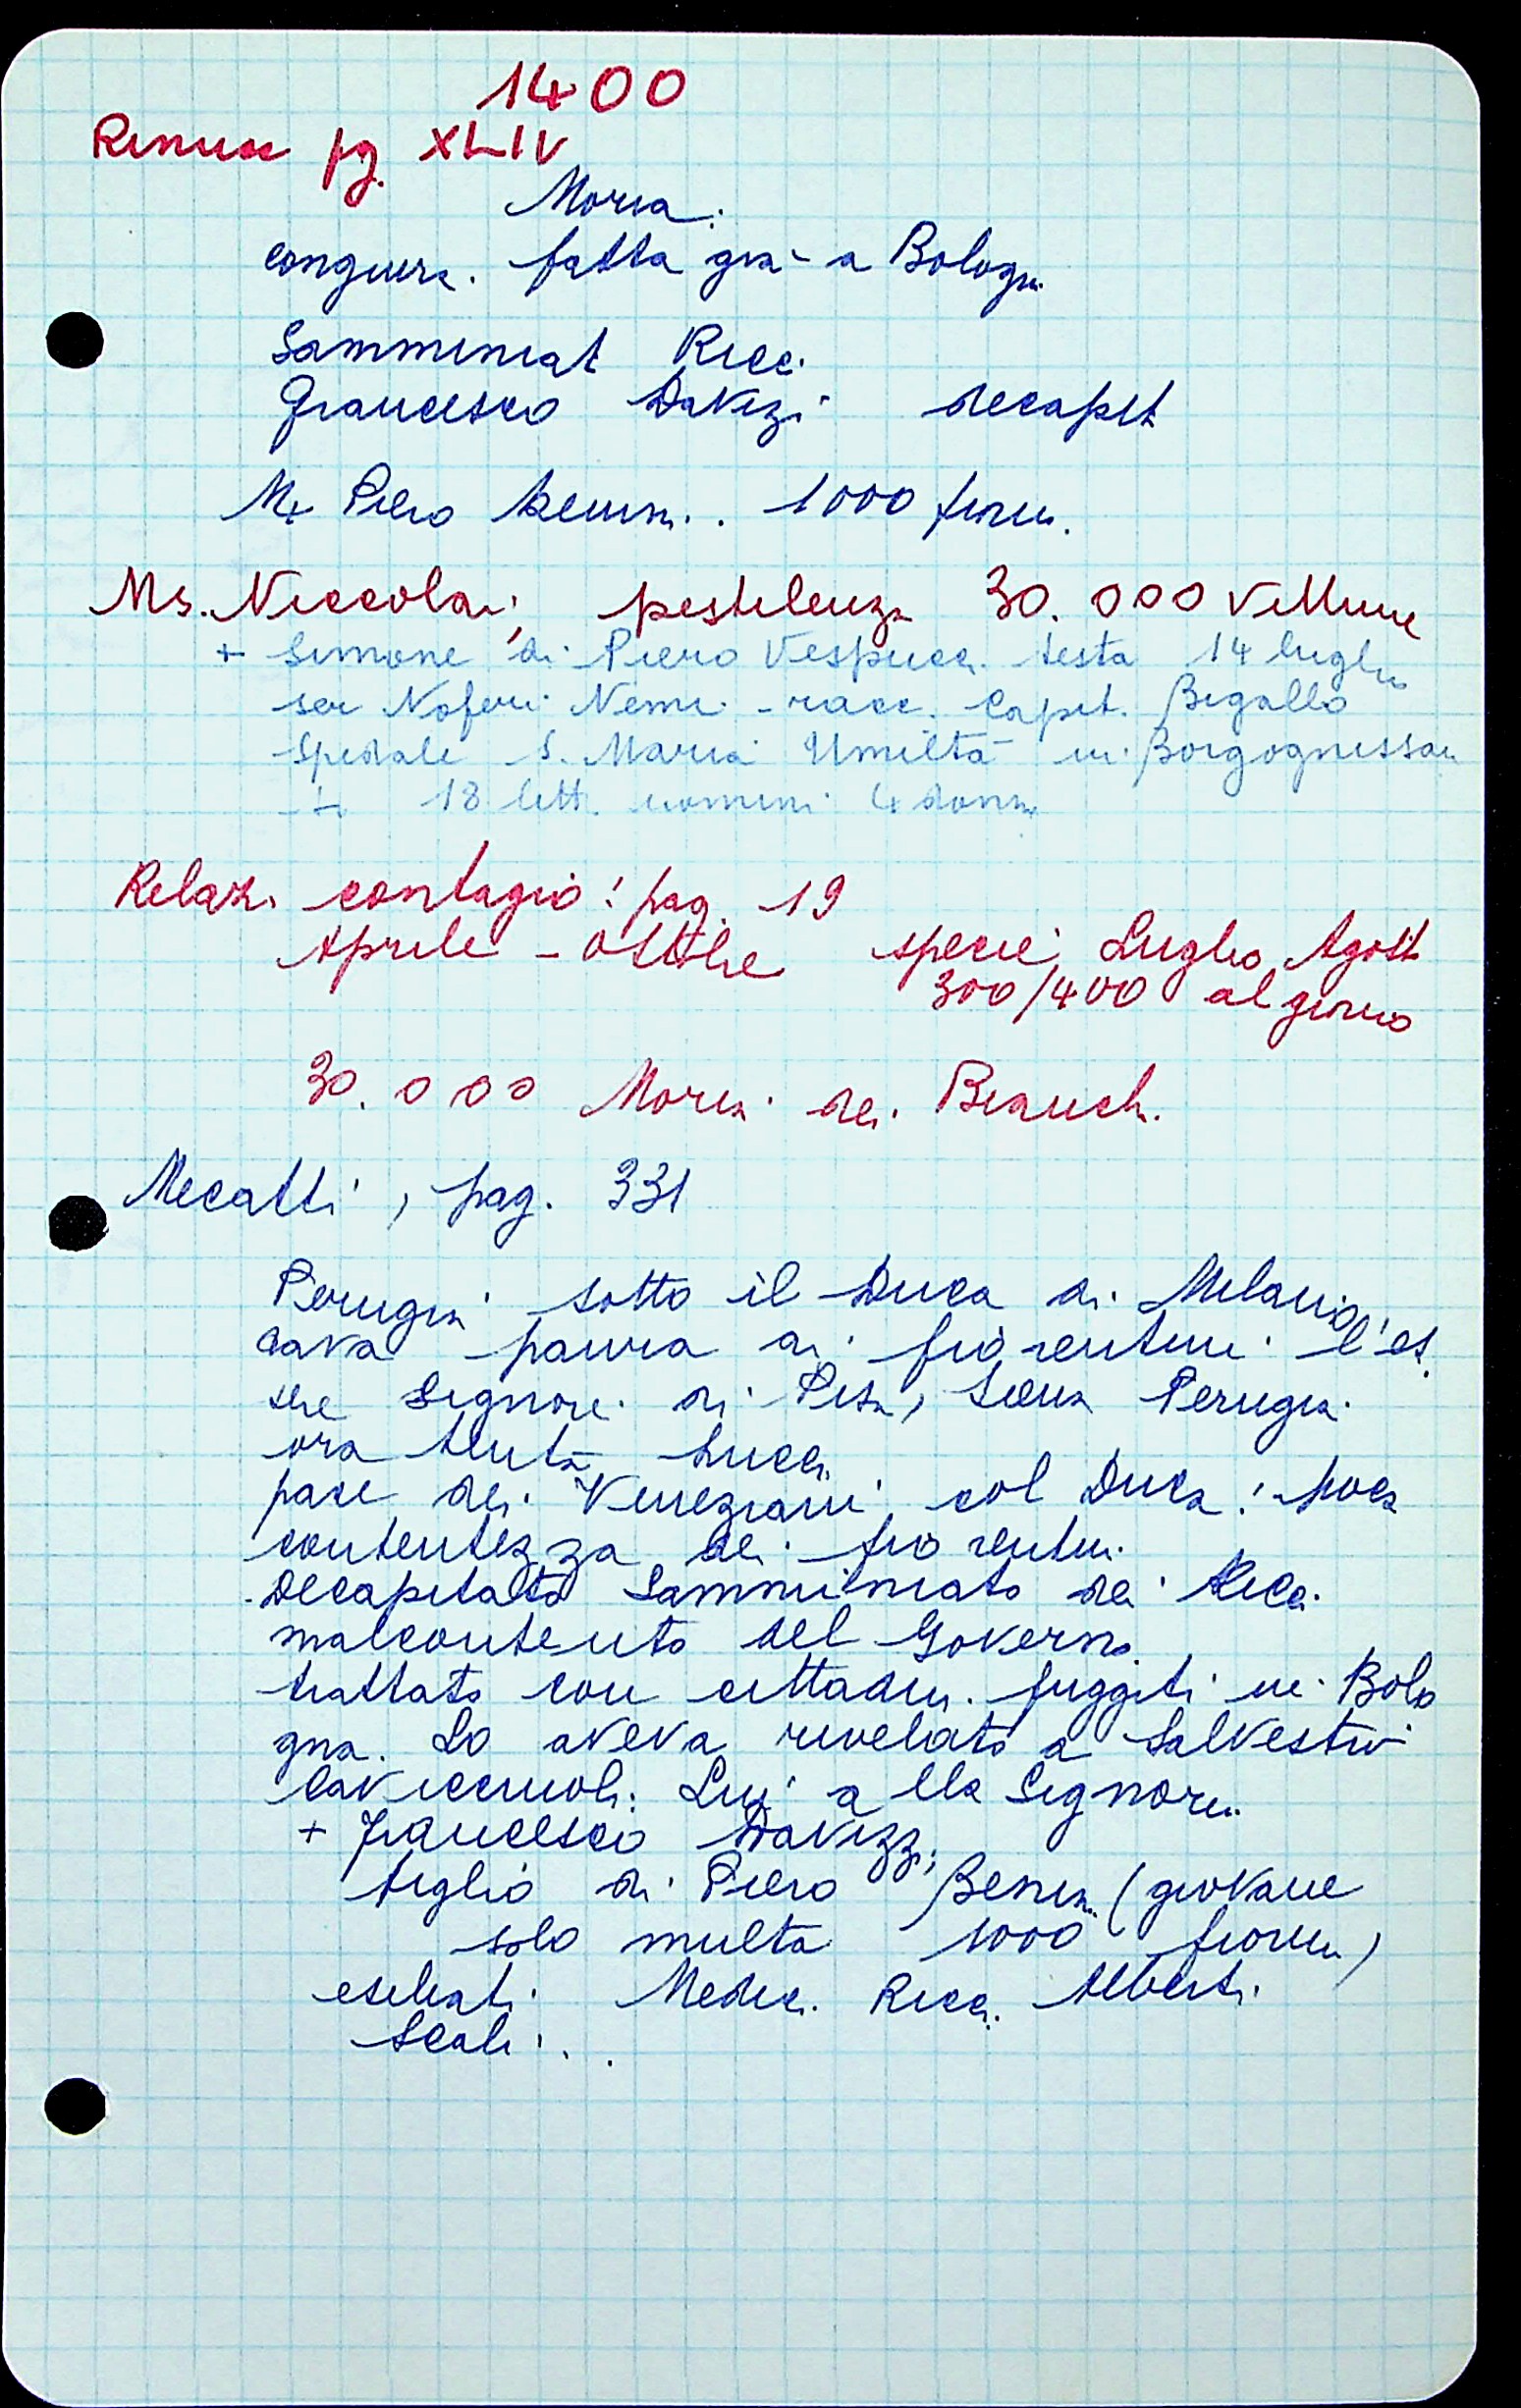 1400
Rinucc pg. XLIV
Moria.
congiura. fatta già a Bologn.
Samminiat Ricci
Francesco Davizi decapit
Mr Piero 1000 fiorin.
Ms. Niccolai; pestilenza 30.000 vittime
+ Simone di Piero Vespucci. testa 14 luglio
ser Noferi Nemi - racc. Capit. Bigallo
Spedale S. Maria Umiltà in Borgognissan
18 lett. uomini 4 donn
Relaz. contagio: pag. 19
Aprile - Ottobre specie Luglio Agost
300/400 al giorno
30.000 Moria dei Bianchi.
Mecatti, pag. 331
Perugia sotto il Duca di Milano
dava paura ai fiorentini l'es
sere Signore di Pisa, Siena Perugia.
ora tenta Lucca
pace dei Veneziani col Duca: poca
contentezza dei fiorentin.
Decapitato Samminiato dei Ricci.
malcontento del Governo.
trattato con cittadin. fuggiti in Bolo
gna. Lo aveva rivelato a Salvestro
Cavicciuoli. Lui alla Signoria.
+ Francesco Davizzi,
figlio di Piero Benin. (giovane
solo multa 1000 fiorin)
esiliati Medici. Ricci. Alberti.
Scali...